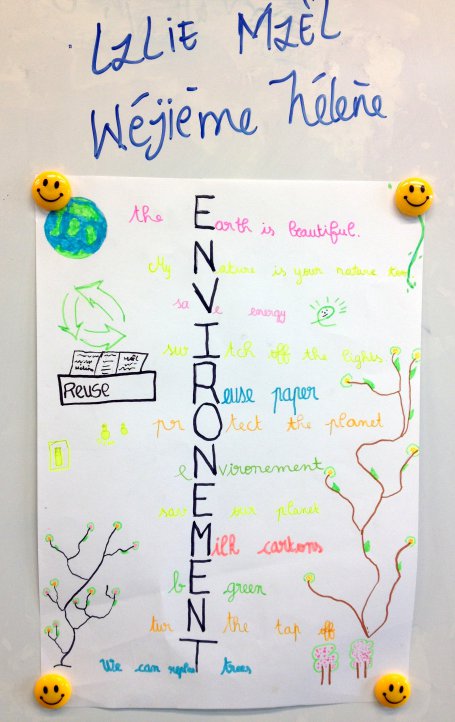 LzLIE MzËL
Wéjième hélène
the Earth is beautiful.
My Nature is your nature too
saVe energy
swItch off the lights
Reuse
Reuse paper
prOtect the planet
eNvironement
savE our planet
Milk cartons
bE green
turN the tap off
We can replanT trees